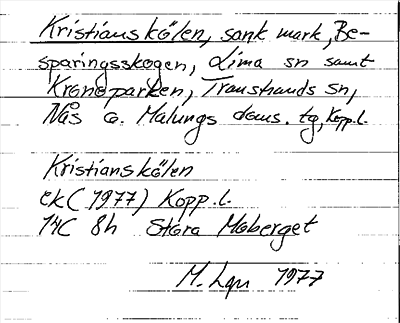 Kristianskölen, sank mark, Be-
sparingsskogen, Lima sn samt
Kronoparken, Transtrands sn,
Nås o. Malungs doms. tg, Kopp.l.
Kristianskölen
ek (1977) Kopp.l.
14C 8h Stora Moberget
M. Lgn 1977